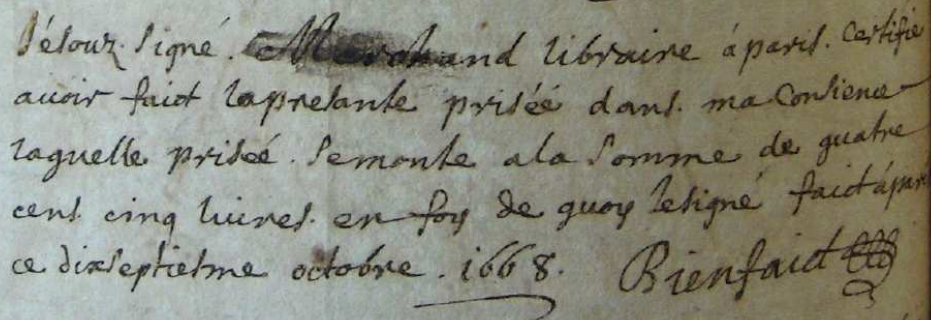 Jésouz. signé. Marchand libraire á paris. certifie
auoir faict lapresante priséé dans. ma Consience
laquelle priséé. semonte ala somme de quatre
cens. cinq liures. en foy de quoy Jesigné faict ápari
ce dixseptiesme octobre. 1668. Bienfaict